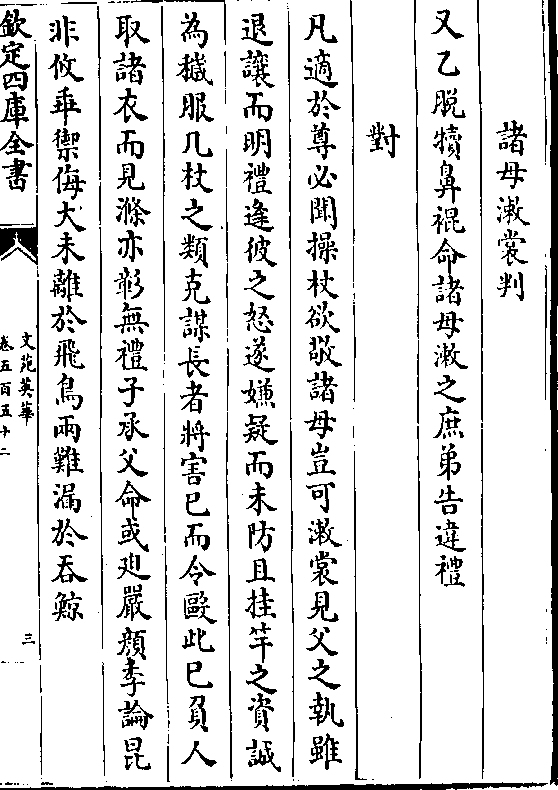 諸母漱裳判
又乙脱犢鼻裩命諸母漱之庶弟告違禮
對
凡適於尊必聞操杖欲敬諸母豈可漱裳見父之執雖
退讓而明禮逢彼之怒遂嫌疑而未防且挂竿之資誠
為穢服几杖之類克謀長者將害已而令毆此已負人
取諸衣而見滌亦彰無禮子承父命或廹嚴顔季論昆
非攸乖禦侮大未離於飛鳥兩難漏於吞鯨
欽定四庫全書
文苑英華
卷五百五十二
三